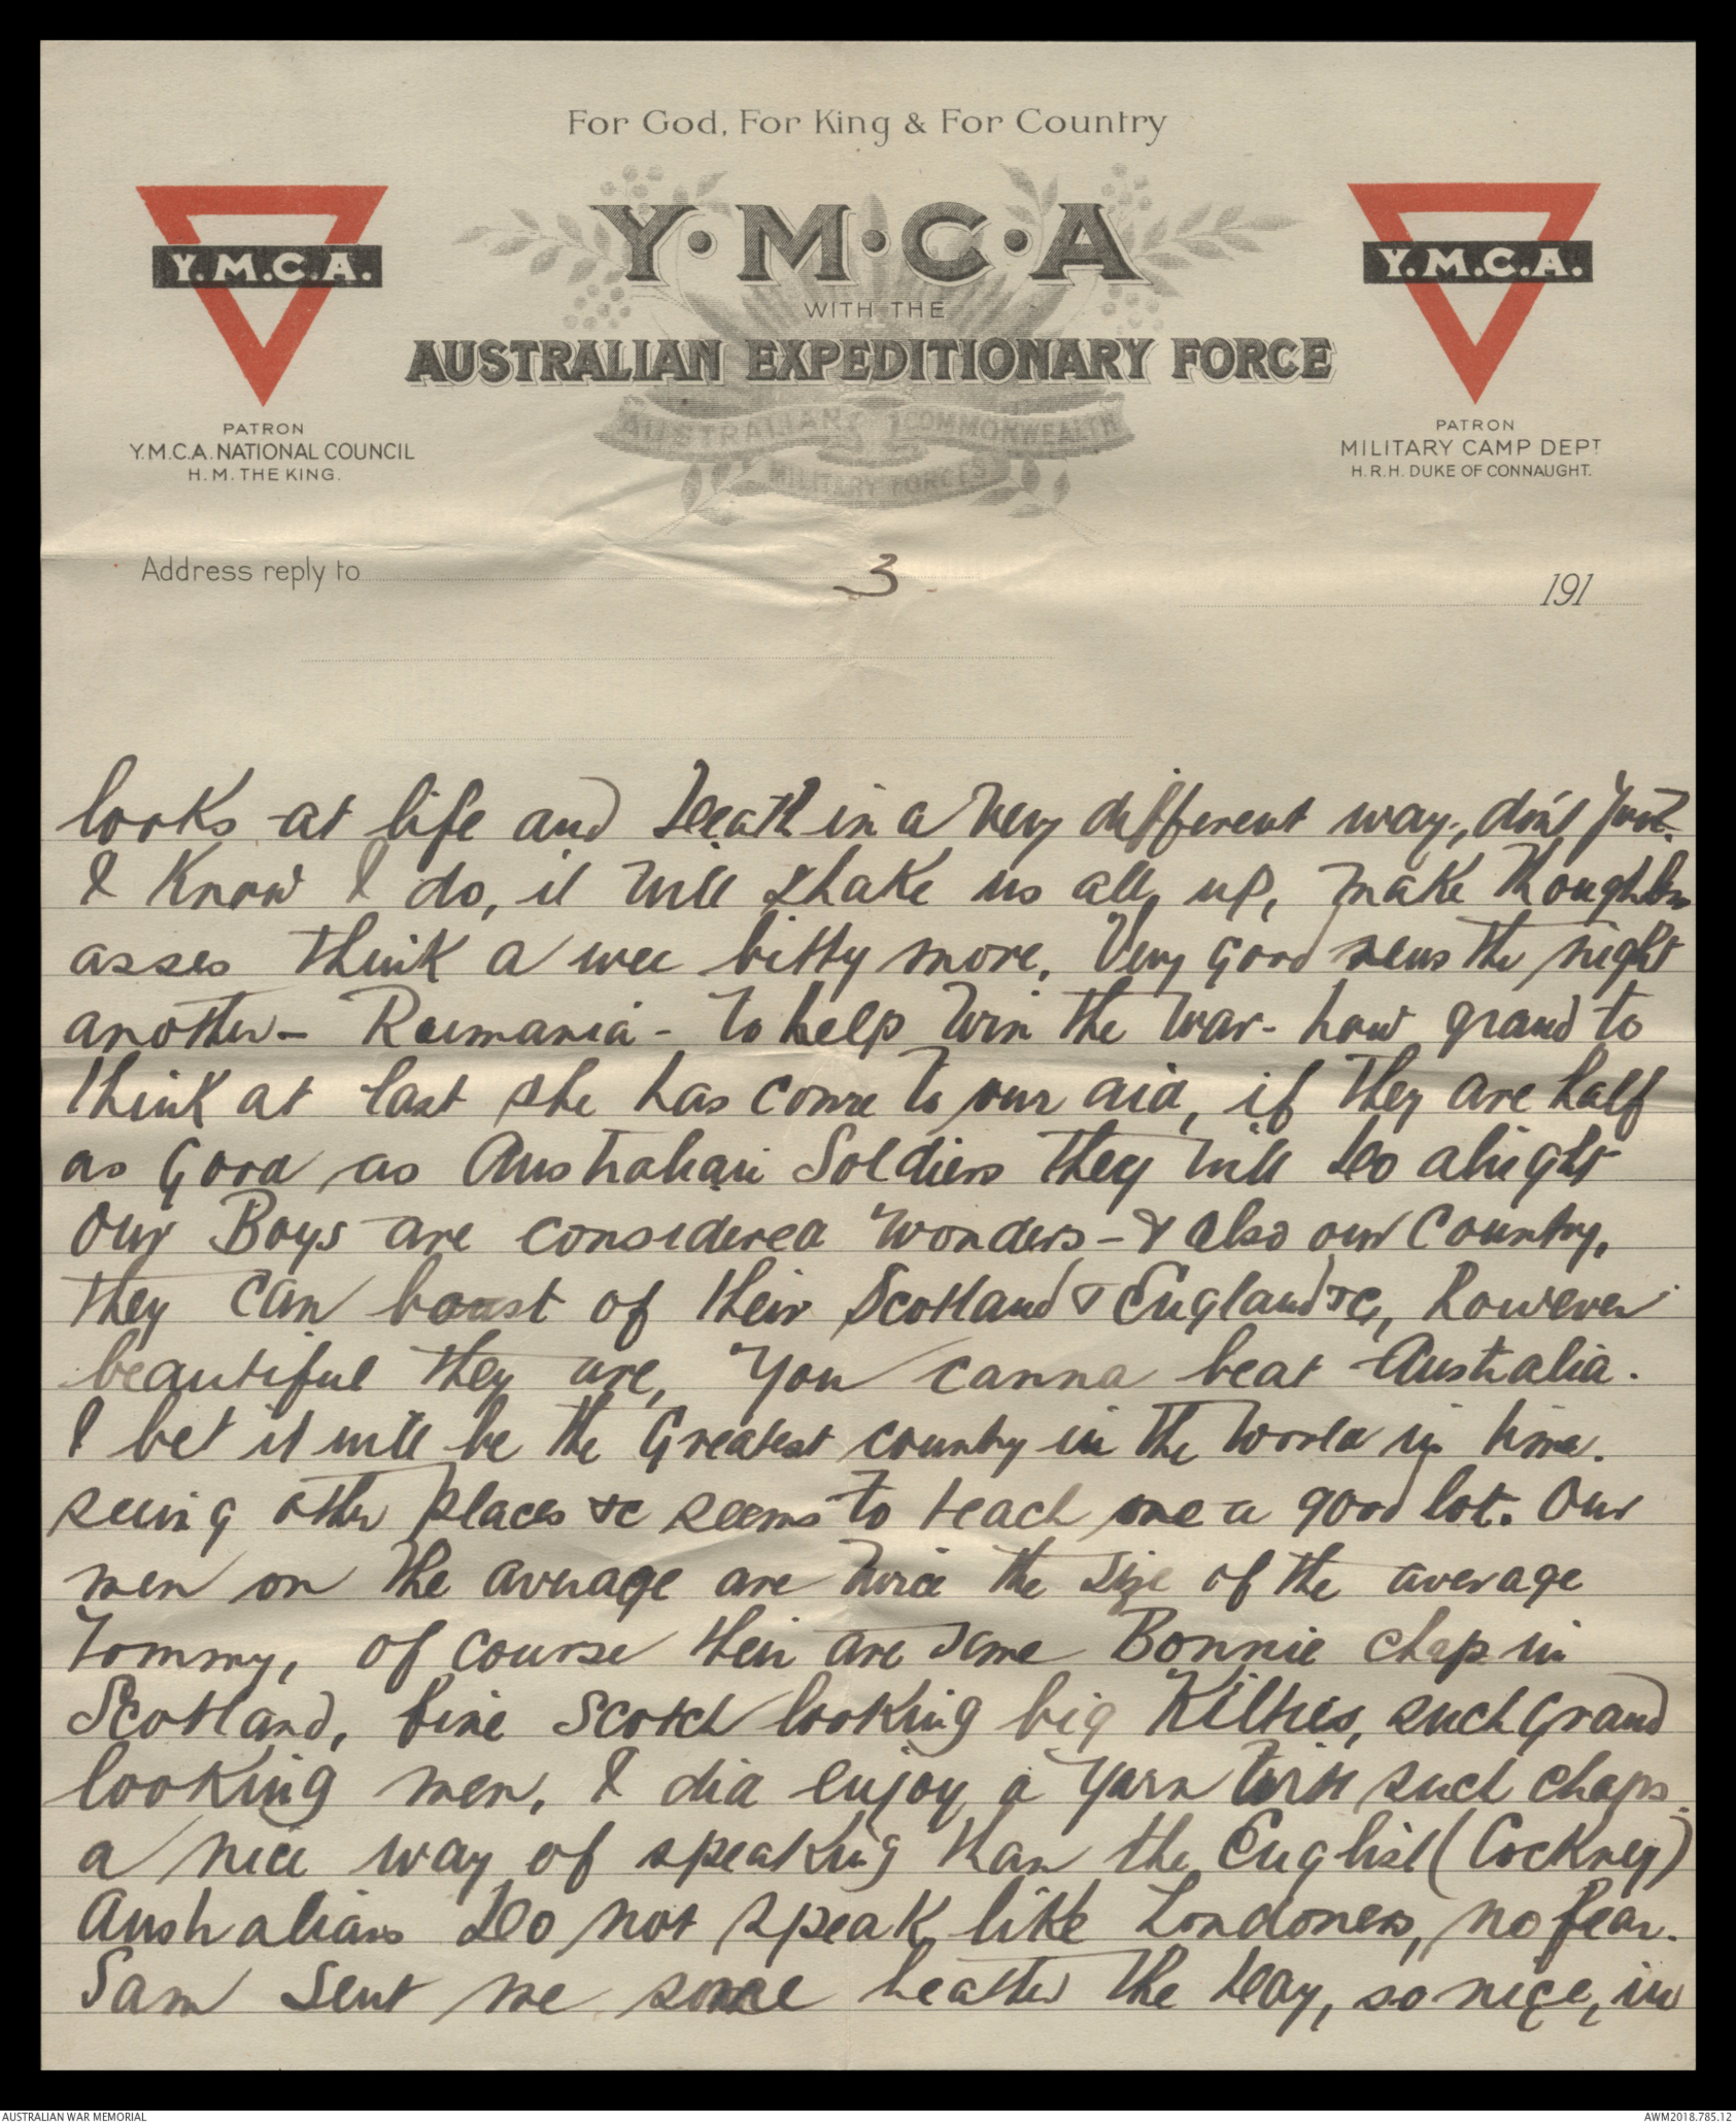 For God, For King & For Country
Y.M.C.A.
Y·M·C·A
Y.M.C.A.
WITH THE
AUSTRALIAN EXPEDITIONARY FORCE
AUSTRALIAN COMMONWEALTH
MILITARY FORCES
PATRON
Y.M.C.A. NATIONAL COUNCIL
H.M. THE KING.
PATRON
MILITARY CAMP DEPT
H.R.H. DUKE OF CONNAUGHT.
Address reply to
3.
191
looks at life and Death in a very different way, don't you?
I know I do, it will shake us all, up, make thoughtless
asses think a wee bitty more. Very good news the night
another - Roumania - to help win the war - how grand to
think at last she has come to our aid, if they are half
as good as Australian Soldiers they will do alright
Our Boys are considered wonders - & also our Country,
they can boast of their Scotland & England &c, however
beautiful they are, you canna beat Australia.
I bet it will be the Greatest country in the world in time.
seeing other places &c seems to teach one a good lot. Our
men on the average are twice the size of the average
Tommy, of course their are some Bonnie chap in
Scotland, fine Scotch looking big Kilties, such grand
looking men, I did enjoy a yarn with such chaps.
a nice way of speaking than the English (Cockney)
Australians do not speak like Londoners, no fear.
Sam sent me some heather the day, so nice, in
AUSTRALIAN WAR MEMORIAL
AWM2018.785.12